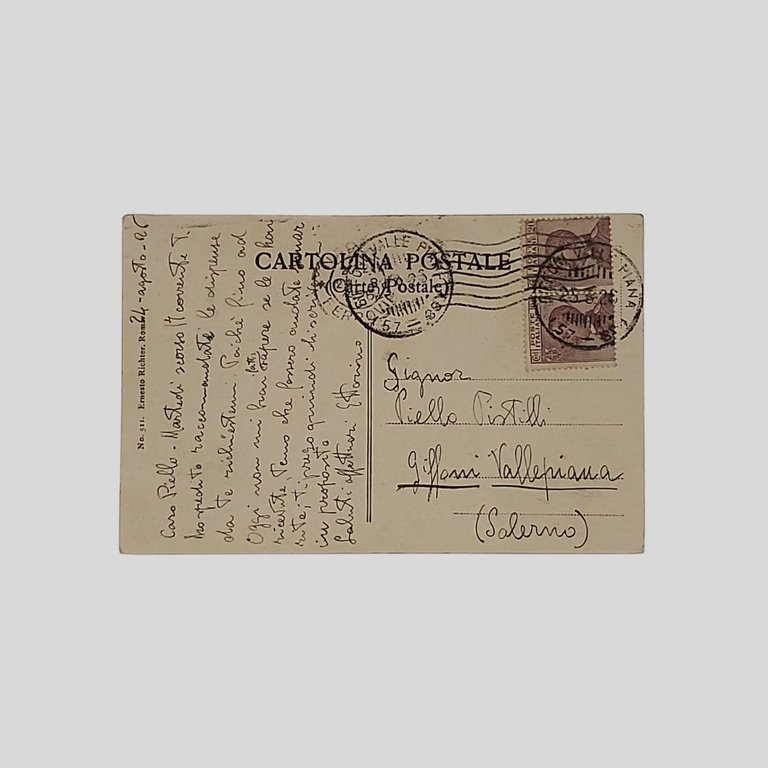 CARTOLINA POSTALE
(Carte Postale)
No. 511. Ernesto Richter, Roma
24-agosto-26
Caro Piello - Martedì scorso 17 corrente T.
ho spedito raccomandate le dispense
da te richiestemi. Poichè fino ad
oggi non mi hai fatto sapere se le hai
ricevute, temo che possano andate smar
rite; ti prego quindi di scrivermi
in proposito.
Saluti affettuosi Ettorino
Signor
Piello Pistilli
Giffoni Vallepiana
(Salerno)
VALLE PIANA
28.8.26